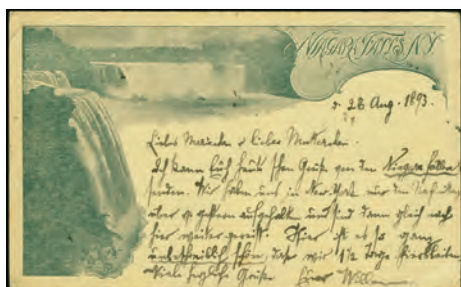 NIAGARA FALLS N.Y.
d. 28 Aug. 1893.
Liebes Mariechen & liebes Mutterchen.
Ich kann Euch heute schon Grüße von den Niagarafällen
senden. Wir haben uns in New-York nur den Nachmittag
über gestern aufgehalten und sind dann gleich nach
hier weiter gereist. Hier ist es so ganz
unbeschreiblich schön, daß wir 1½ Tage hierbleiben.
Viele herzliche Grüße Euer